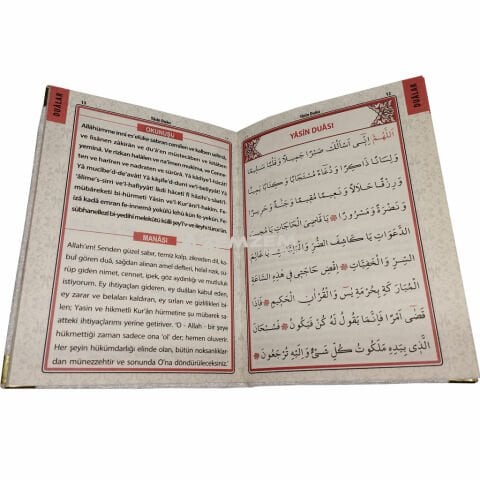 DUÂLAR
13
Yâsîn Duâsı
OKUNUŞU
Allâhümme innî es'elüke sabran cemîlen ve kalben selîmâ,
ve lisânen zâkirân ve du'âen müstecâben ve kitâben
yemînâ. Ve rızkan halâlen ve na'îmen mukîma, ve Cenne-
ten ve harîran ve nadraten ve sürûrâ. Yâ kâdıye'l-hâcâti
Yâ mucîbe'd-de'avât! Yâ kâşife'd-durri ve'l-beliyyât! Yâ
'âlime's-sirri ve'l-hafiyyât! İkdi hâcetî fî hâzihi's-sâati'l
mübâreketi bi-hürmeti Yâsîn ve'l-Kur'âni'l-hakîm. Fe-
izâ kadâ emran fe-innemâ yekûlü lehû kün fe-yekûn. Fe-
sübhanellezî bi-yedihî melekûtü külli şey'i-v ve ileyhi türceûn.
MANÂSI
Allah'ım! Senden güzel sabır, temiz kalp, zikreden dil, ka-
bul gören duâ, sağdan alınan amel defteri, helal rızık, sü-
rüp giden nimet, cennet, ipek, endam güzelliği ve mutluluk
istiyorum. Ey ihtiyaçları gideren, ey duâları kabul eden,
ey zarar ve belaları kaldıran, ey sırları ve gizlilikleri bi-
len; Yasin ve hikmetli Kur'ân hürmetine şu mübarek sa-
atteki ihtiyaçlarımı yerine getiriver. 'O - Allah - bir şeye
hükmettiği zaman sadece ona 'ol' der; hemen oluverir.
Her şeyin hükümdarlığı elinde olan, bütün noksanlıklar
dan münezzehtir ve sonunda O'na döndürüleceksiniz.'
12
Yâsîn Duâsı
DUÂLAR
YÂSİN DUÂSI
اَللّٰهُمَّ اِنّٖى اَسْأَلُكَ صَبْرًا جَمٖيلًا وَقَلْبًا سَلٖيمًا
وَلِسَانًا ذَاكِرًا وَدُعَاءً مُسْتَجَابًا وَكِتَابًا يَمٖينًا
وَرِزْقًا حَلَالًا وَنَعٖيمًا مُقٖيمًا وَجَنَّةً وَحَرٖيرًا
وَنَضْرَةً وَسُرُورًا ❁ يَا قَاضِىَ الْحَاجَاتِ يَا مُجٖيبَ
الدَّعَوَاتِ يَا كَاشِفَ الضُّرِّ وَالْبَلِيَّاتِ يَا عَالِمَ
السِّرِّ وَالْخَفِيَّاتِ ❁ اِقْضِ حَاجَتٖى فٖى هٰذِهِ السَّاعَةِ
الْمُبَارَكَةِ بِحُرْمَةِ يٰسٓ وَالْقُرْاٰنِ الْحَكٖيمِ ❁ فَاِذَا
قَضٰى اَمْرًا فَاِنَّمَا يَقُولُ لَهُ كُنْ فَيَكُونُ ❁ فَسُبْحَانَ
الَّذٖى بِيَدِهٖ مَلَكُوتُ كُلِّ شَىْءٍ وَاِلَيْهِ تُرْجَعُونَ ❁